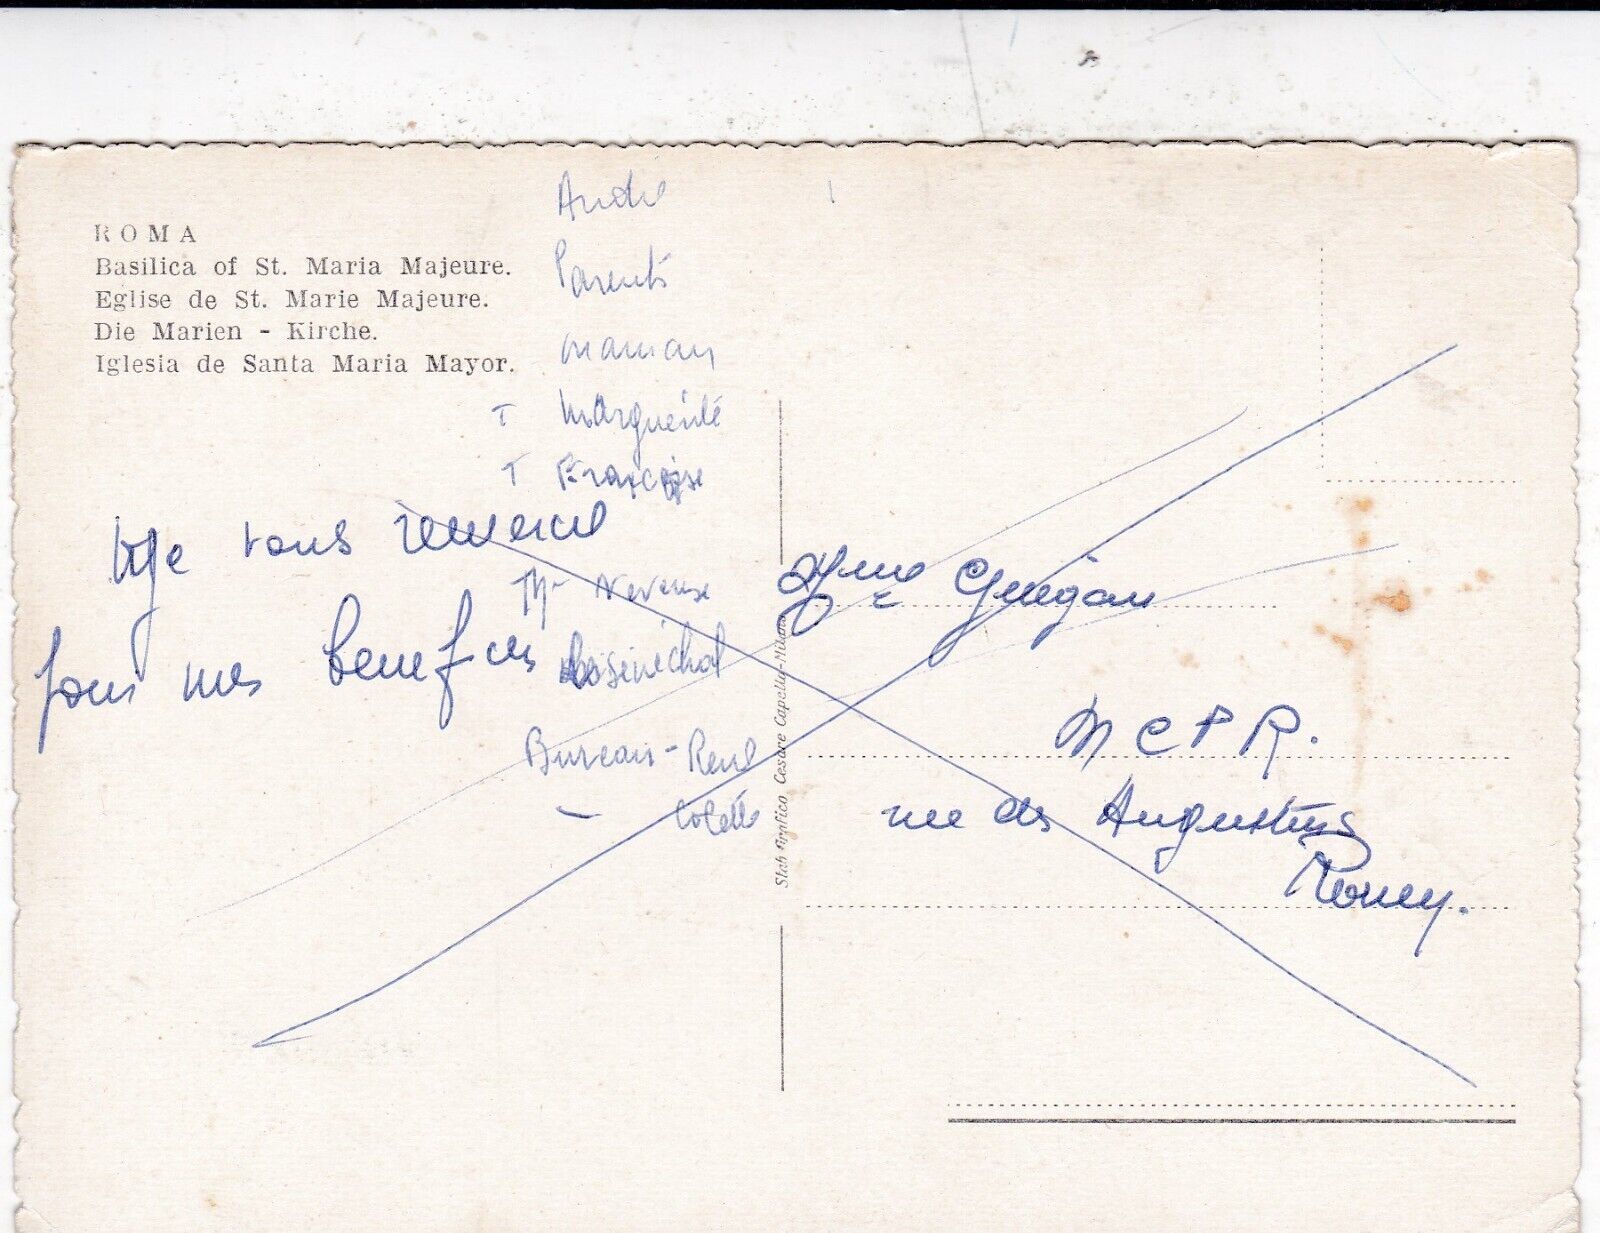 ROMA
Basilica of St. Maria Majeure.
Eglise de St. Marie Majeure.
Die Marien - Kirche.
Iglesia de Santa Maria Mayor.
André
Parents
maman
T Marguerite
T Françoise
Je vous remercie
pour mes benefices
Mr
Senechal
Bureau - René
- Colette
Stab Grafico Cesare Capello-Milano
Mme Guigan
M C P R.
rue des Augustins